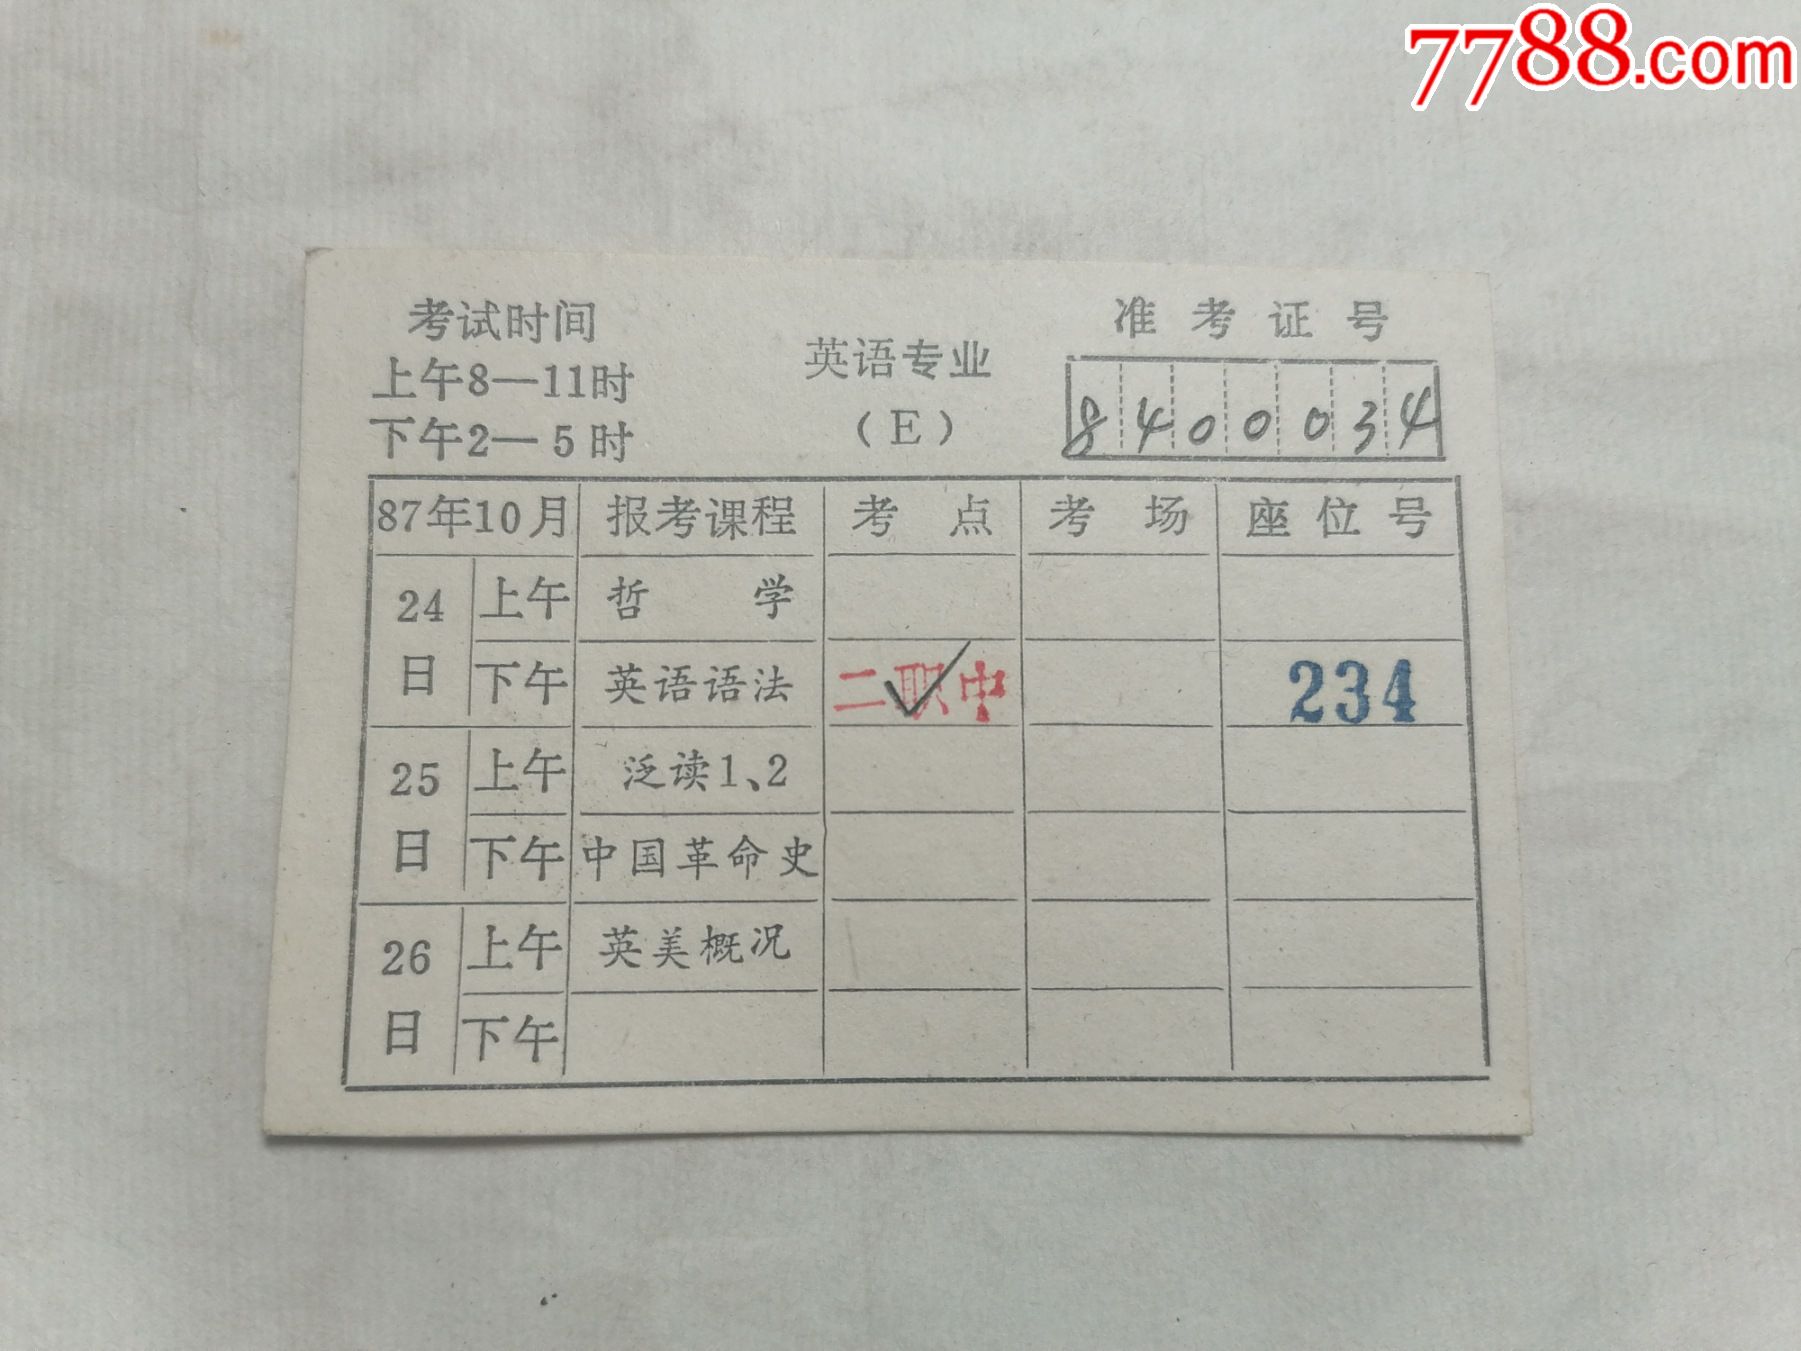 7788.com
考试时间
上午8—11时
下午2—5时
英语专业
(E)
准考证号
8400034
87年10月 报考课程 考点 考场 座位号
24日 上午 哲学
下午 英语语法 二职中 234
25日 上午 泛读1、2
下午 中国革命史
26日 上午 英美概况
下午